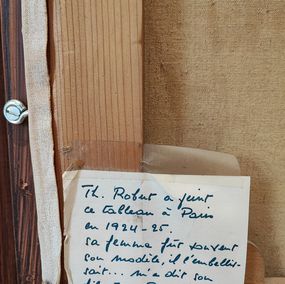 Th. Robert a peint
ce tableau à Paris
en 1924-25.
sa femme fût souvent
son modèle, il l'embellis-
sait... m'a dit son